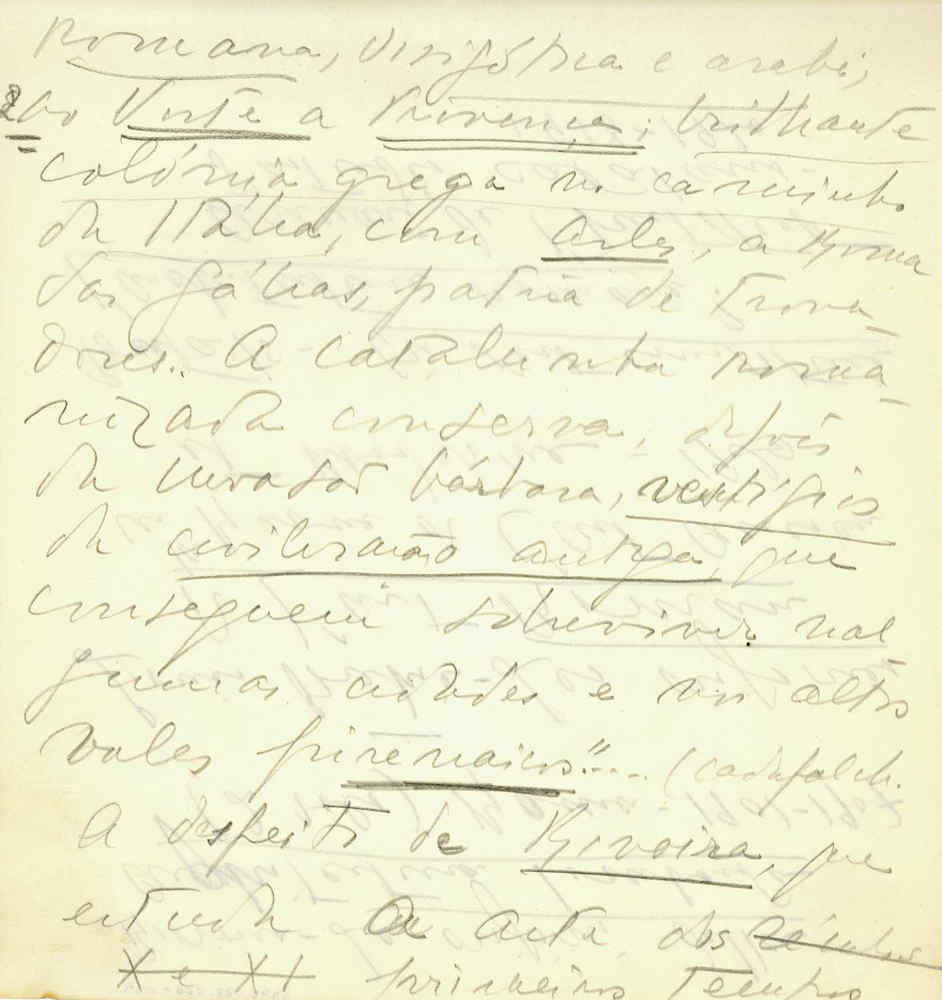 romana, visigótica e arabe;
ao Norte a Provença: brilhante
colónia grega no caminho
da Itália, com Arles, a Roma
das Gálias, patria de trova-
dores.. A Catalunha roma-
nizada conserva, depois
da invasão bárbara, vestígios
da civilisação antiga, que
conseguem sobreviver nal
gumas cidades e nos altos
vales pirenaicos"....(Cadafalch.
A despeito de Rivoira, que
estuda a arte dos séculos
X e XI primeiros tempos